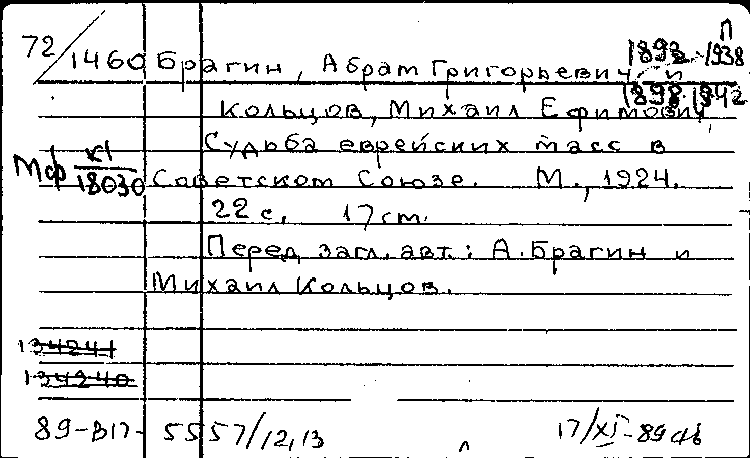 72/1460 Брагин, Абрам Григорьевич и
1893-1938
1898 1942
Кольцов, Михаил Ефимович,
Судьба еврейских масс в
Мф К1/18030 Советском Союзе. М., 1924.
22 с. 17 см.
Перед загл. авт.: А. Брагин и
Михаил Кольцов.
134241
134240
89-В17- 5557/12,13 17/XI-89